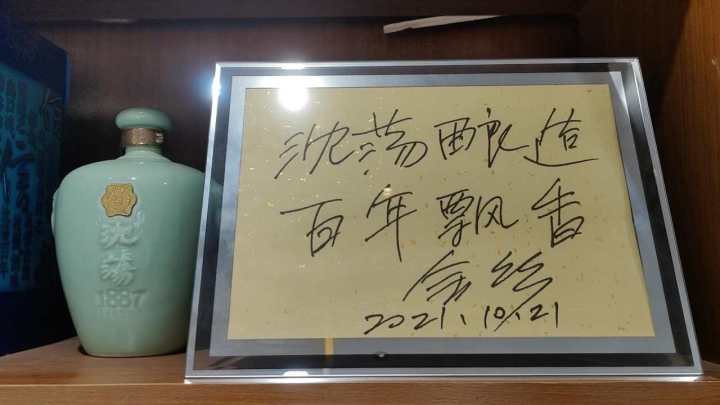 沈荡
1887
沈荡酿造
百年飘香
2021.10.21